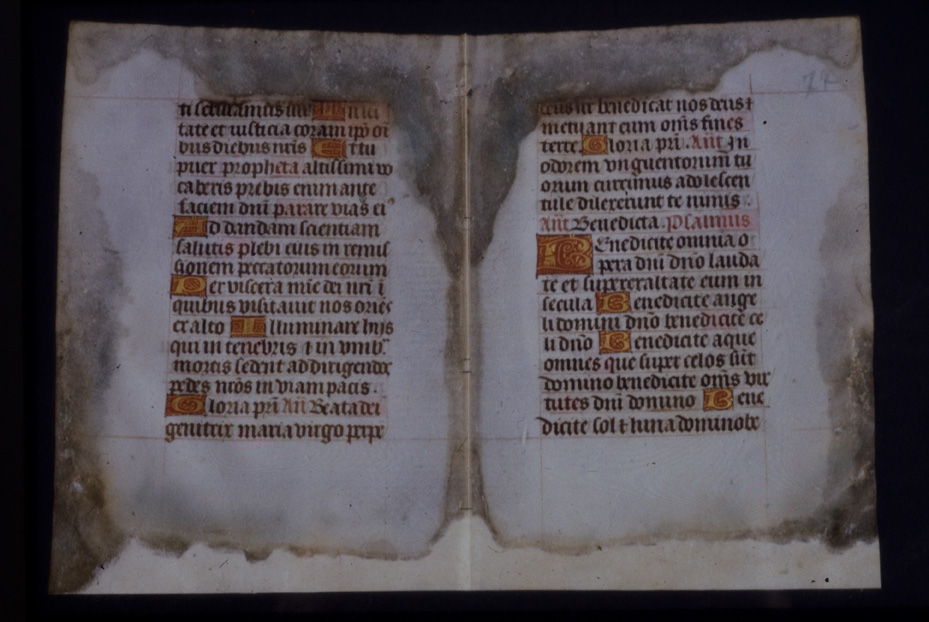 ti seruiamus illi In sci
tate et iusticia coram ipō oī
bus diebus nr̄is Et tu
puer propheta altissimi vo
caberis preibis enim ante
faciem dn̄i parare vias ei⁹
Ad dandam scientiam
salutis plebi eius in remis
sionem peccatorum eorum
Per viscera mīe dei nr̄i ī
quibus visitauit nos oriēs
ex alto Illuminare hijs
qui in tenebris ⁊ in vmb
mortis sedent ad dirigendos
pedes nr̄os in viam pacis
Gloria pr̄i Añ Beata dei
genitrix maria virgo perpe
77
deus nr̄ benedicat nos deus ⁊
metuant eum om̄s fines
terre. Gloria pr̄i. Añt In
odorem vnguentorum tu
orum currimus adolescen
tule dilexerunt te nimis
Añt Benedicta. Psalmus
Benedicite omnia o
pera dn̄i dn̄o lauda
te et superexaltate eum in
secula Benedicite ange
li domini dn̄o benedicite ce
li dn̄o Benedicite aque
omnes que super celos sūt
domino benedicite om̄s vir
tutes dn̄i domino Bene
dicite sol ⁊ luna domino be